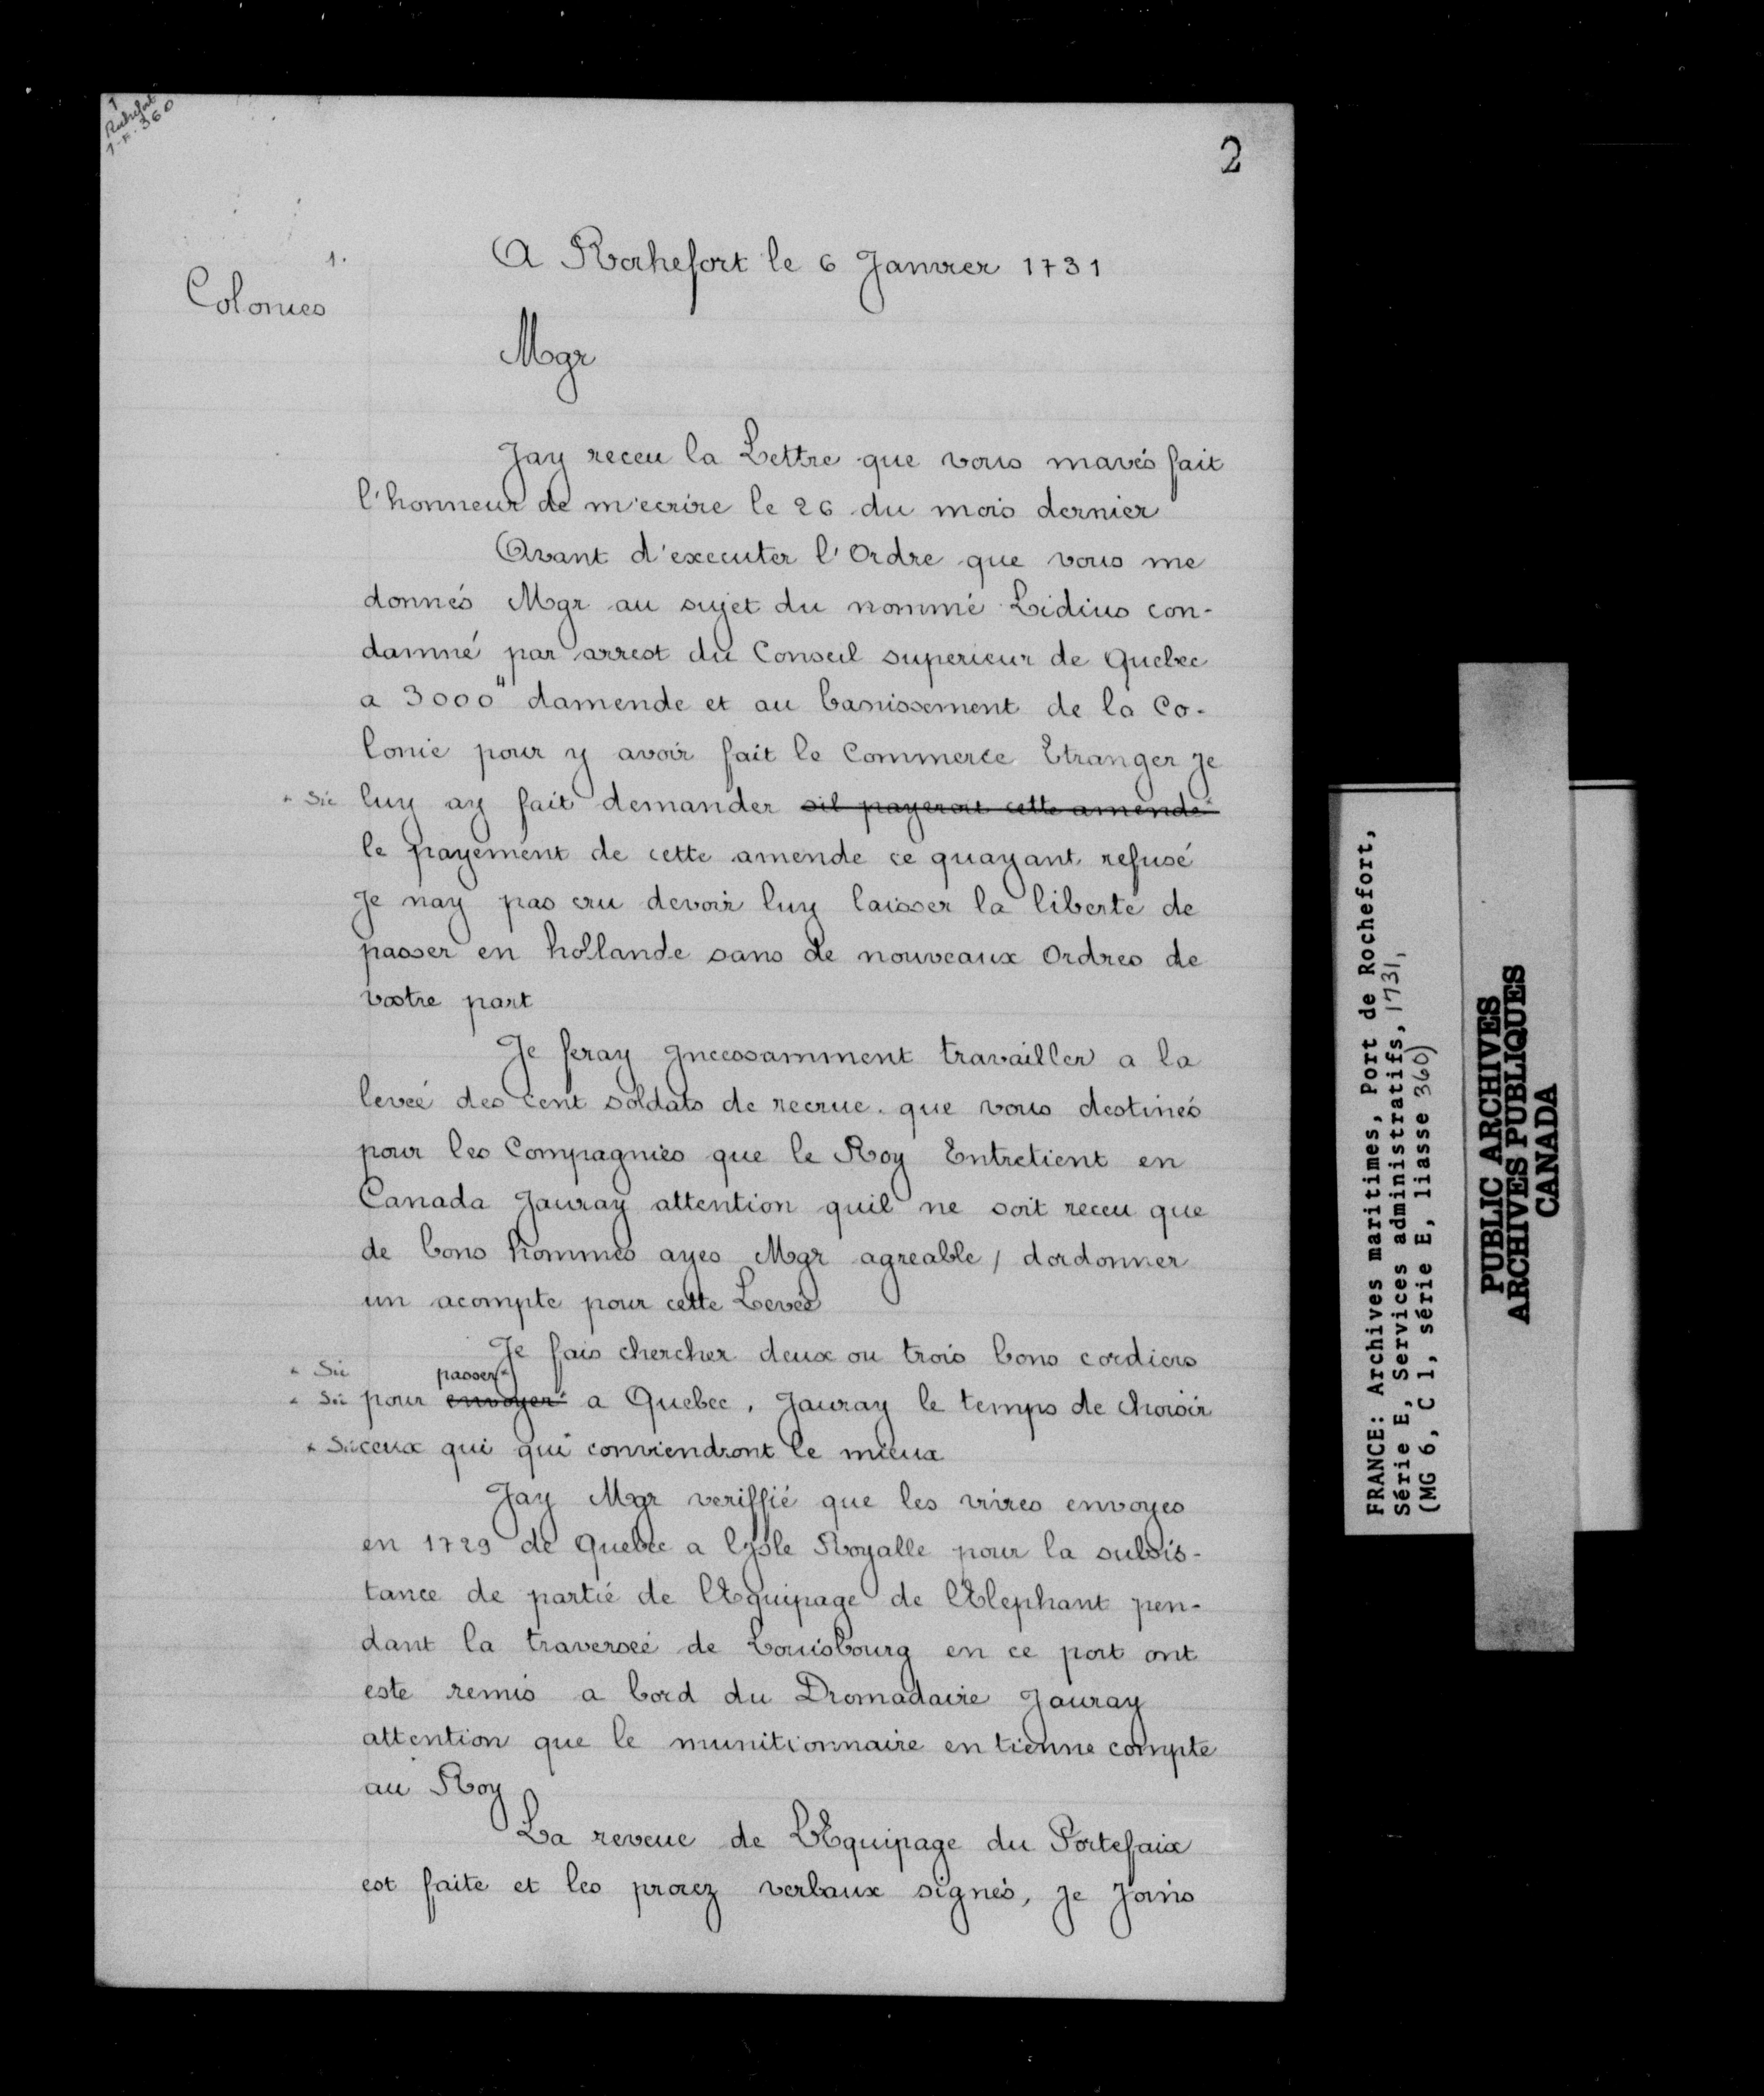 1
Rochefort
1-E. 360
2
1.
A Rochefort le 6 Janvier 1731
Colonies
Mgr
Jay receu la Lettre que vous mavés fait
l'honneur de m'ecrire le 26 du mois dernier
Avant d'executer l'Ordre que vous me
donnés Mgr au sujet du nommé Lidius con-
damné par arrest du Conseil superieur de Quebec
a 3000ᴴ damende et au banissement de la Co-
lonie pour y avoir fait le Commerce Etranger Je
+ Sic luy ay fait demander sil payeroit cette amende+
le payement de cette amende ce quayant refusé
Je nay pas cru devoir luy laisser la liberté de
passer en hollande sans de nouveaux Ordres de
vostre part
Je feray Jncessamment travailler a la
leveé des cent soldats de recrue. que vous destinés
pour les Compagnies que le Roy Entretient en
Canada Jauray attention quil ne soit receu que
de bons hommes ayes Mgr agreable, dordonner
un acompte pour cette Leveé
Je fais chercher deux ou trois bons cordiers
+ Sic passer+
+ Sic pour envoyer+ a Quebec, Jauray le temps de choisir
+ Sic ceux qui qui conviendront le mieux
Jay Mgr veriffié que les vivres envoyes
en 1729 de Quebec a lysle Royalle pour la subsis-
tance de partié de lEquipage de lElephant pen-
dant la traverseé de Louisbourg en ce port ont
este remis a bord du Dromadaire Jauray
attention que le munitionnaire en tienne compte
au Roy
La reveue de LEquipage du Portefaix
est faite et les procez verbaux signés, Je Joins
FRANCE: Archives maritimes, Port de Rochefort,
Série E, Services administratifs, 1731,
(MG 6, C 1, série E, liasse 360)
PUBLIC ARCHIVES
ARCHIVES PUBLIQUES
CANADA